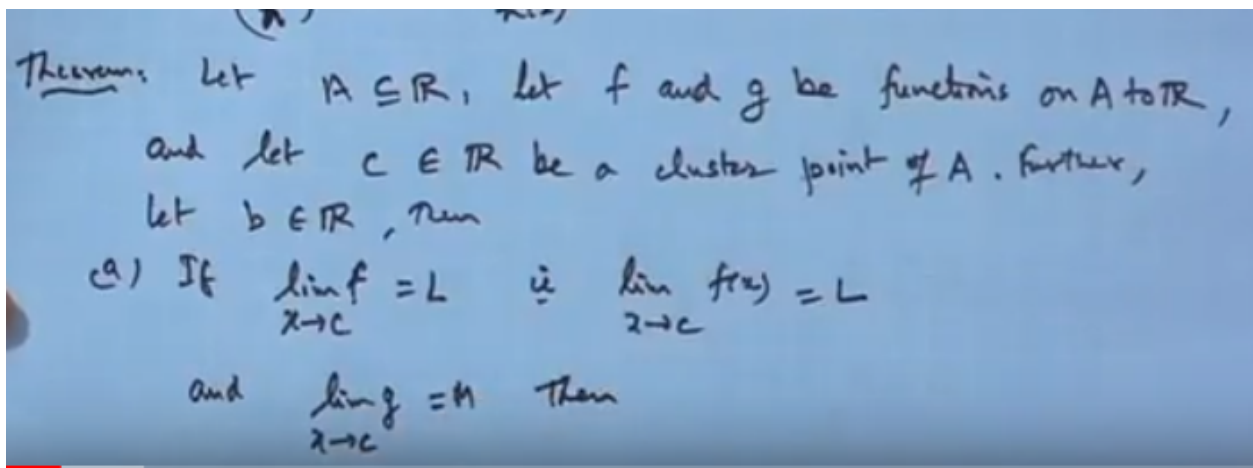 Theorem: Let A ⊆ ℝ, let f and g be functions on A to ℝ,
and let c ∈ ℝ be a cluster point of A. Further,
let b ∈ ℝ, Then
(a) If lim f = L ie lim f(x) = L
x→c x→c
and lim g = M Then
x→c